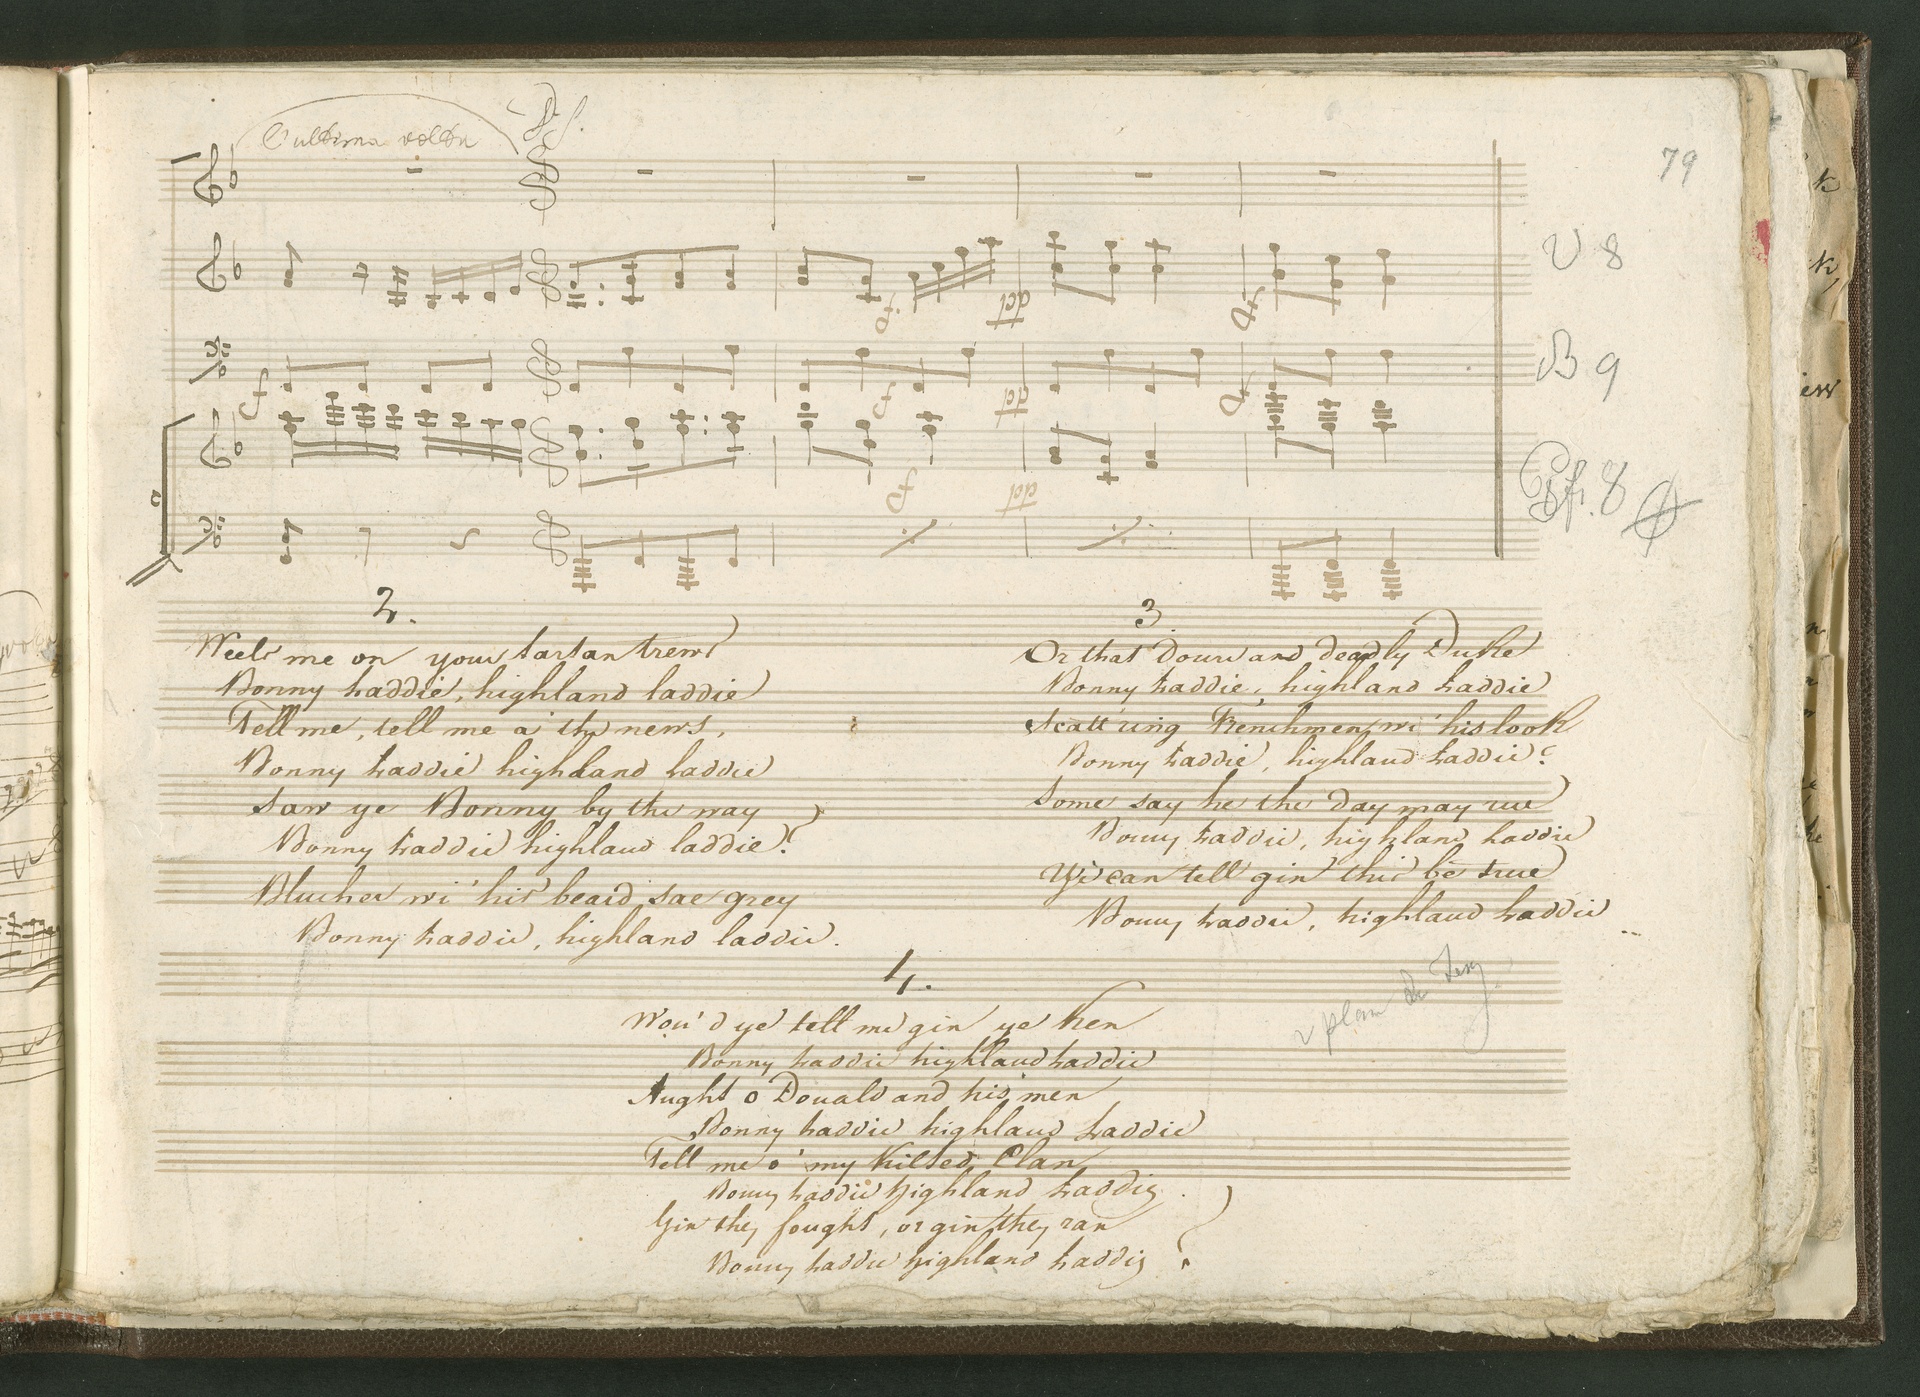 L'ultima volta
79
V 8
f
fp
dol
fp
B 9
f
f
dol
fp
f
dol
Pf. 8
2.
Weel me on your tartan trews
Bonny laddie, highland laddie
Tell me, tell me a' the news,
Bonny laddie highland laddie
Saw ye Bonny by the way
Bonny laddie highland laddie?
Blucher wi' his beard sae grey
Bonny laddie, highland laddie.
3
Or that Doure and deadly Duke
Bonny laddie, highland laddie
Scatt'ring Frenchmen wi' his look
Bonny laddie, highland laddie?
Some say he the day may rue
Bonny laddie, highland laddie
Ye can tell gin this be true
Bonny laddie, highland laddie
4.
Wou'd ye tell me gin ye ken
Bonny laddie highland laddie
Aught o Donald and his men
Bonny laddie highland laddie
Tell me o' my kilted Clan
Bonny laddie highland laddie.
Gin they fought, or gin they ran
Bonny laddie highland laddie?